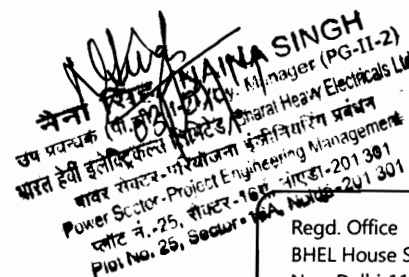 नैना सिंह / NAINA SINGH
उप प्रबन्धक Manager (PG-II-2)
भारत हेवी इलेक्ट्रिकल्स लिमिटेड, Bharat Heavy Electricals Ltd
पावर सेक्टर-परियोजना इंजीनियरिंग प्रबंधन
Power Sector-Project Engineering Management
प्लॉट नं.-25, सेक्टर-16ए, नोएडा-201 301
Plot No. 25, Sector-16A, Noida-201 301
Regd. Office
BHEL House S
New Delhi-11